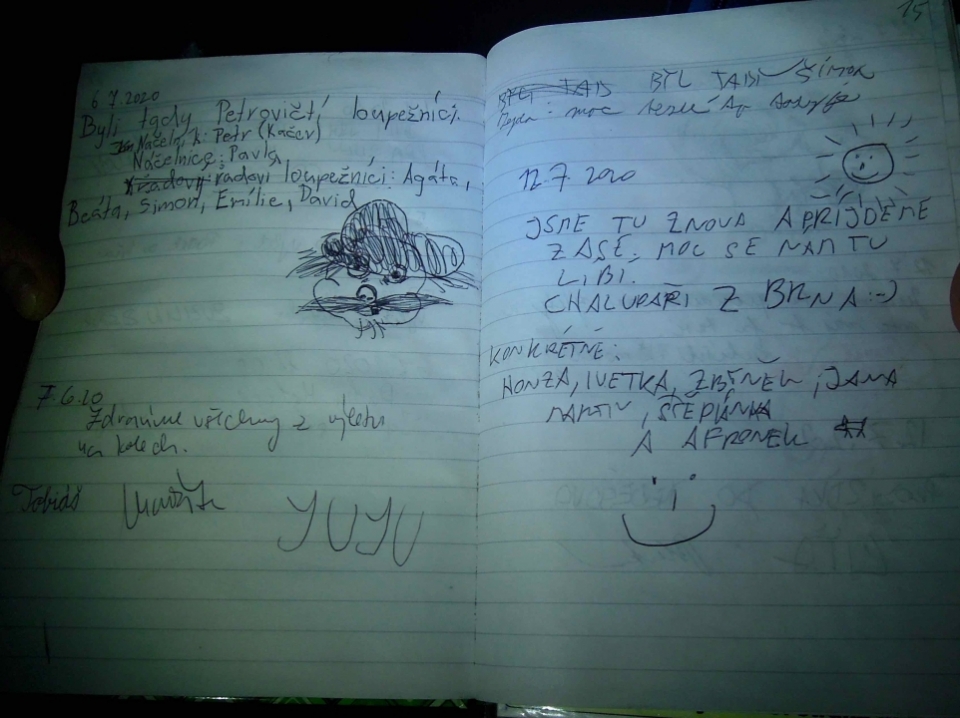 6.7.2020
Byli tady Petrovičtí loupežníci.
Náčelník: Petr (Kačer)
Náčelnice: Pavla
radoví loupežníci: Agáta,
Beáta, Simon, Emílie, David
7.6.20
Zdravíme všechny z výletu
na kolech.
Tobiáš
YUYU
15
BYL TADY ŠIMON
moc
12.7 2020
JSME TU ZNOVA A PŘIJDEME
ZASE, MOC SE NÁM TU
LIBÍ.
CHALUPÁŘI Z BRNA :-)
KONKRÉTNĚ:
HONZA, IVETKA, ZBYNĚK, JANA
MARTIN, ŠTĚPÁNKA
A AFRONEK